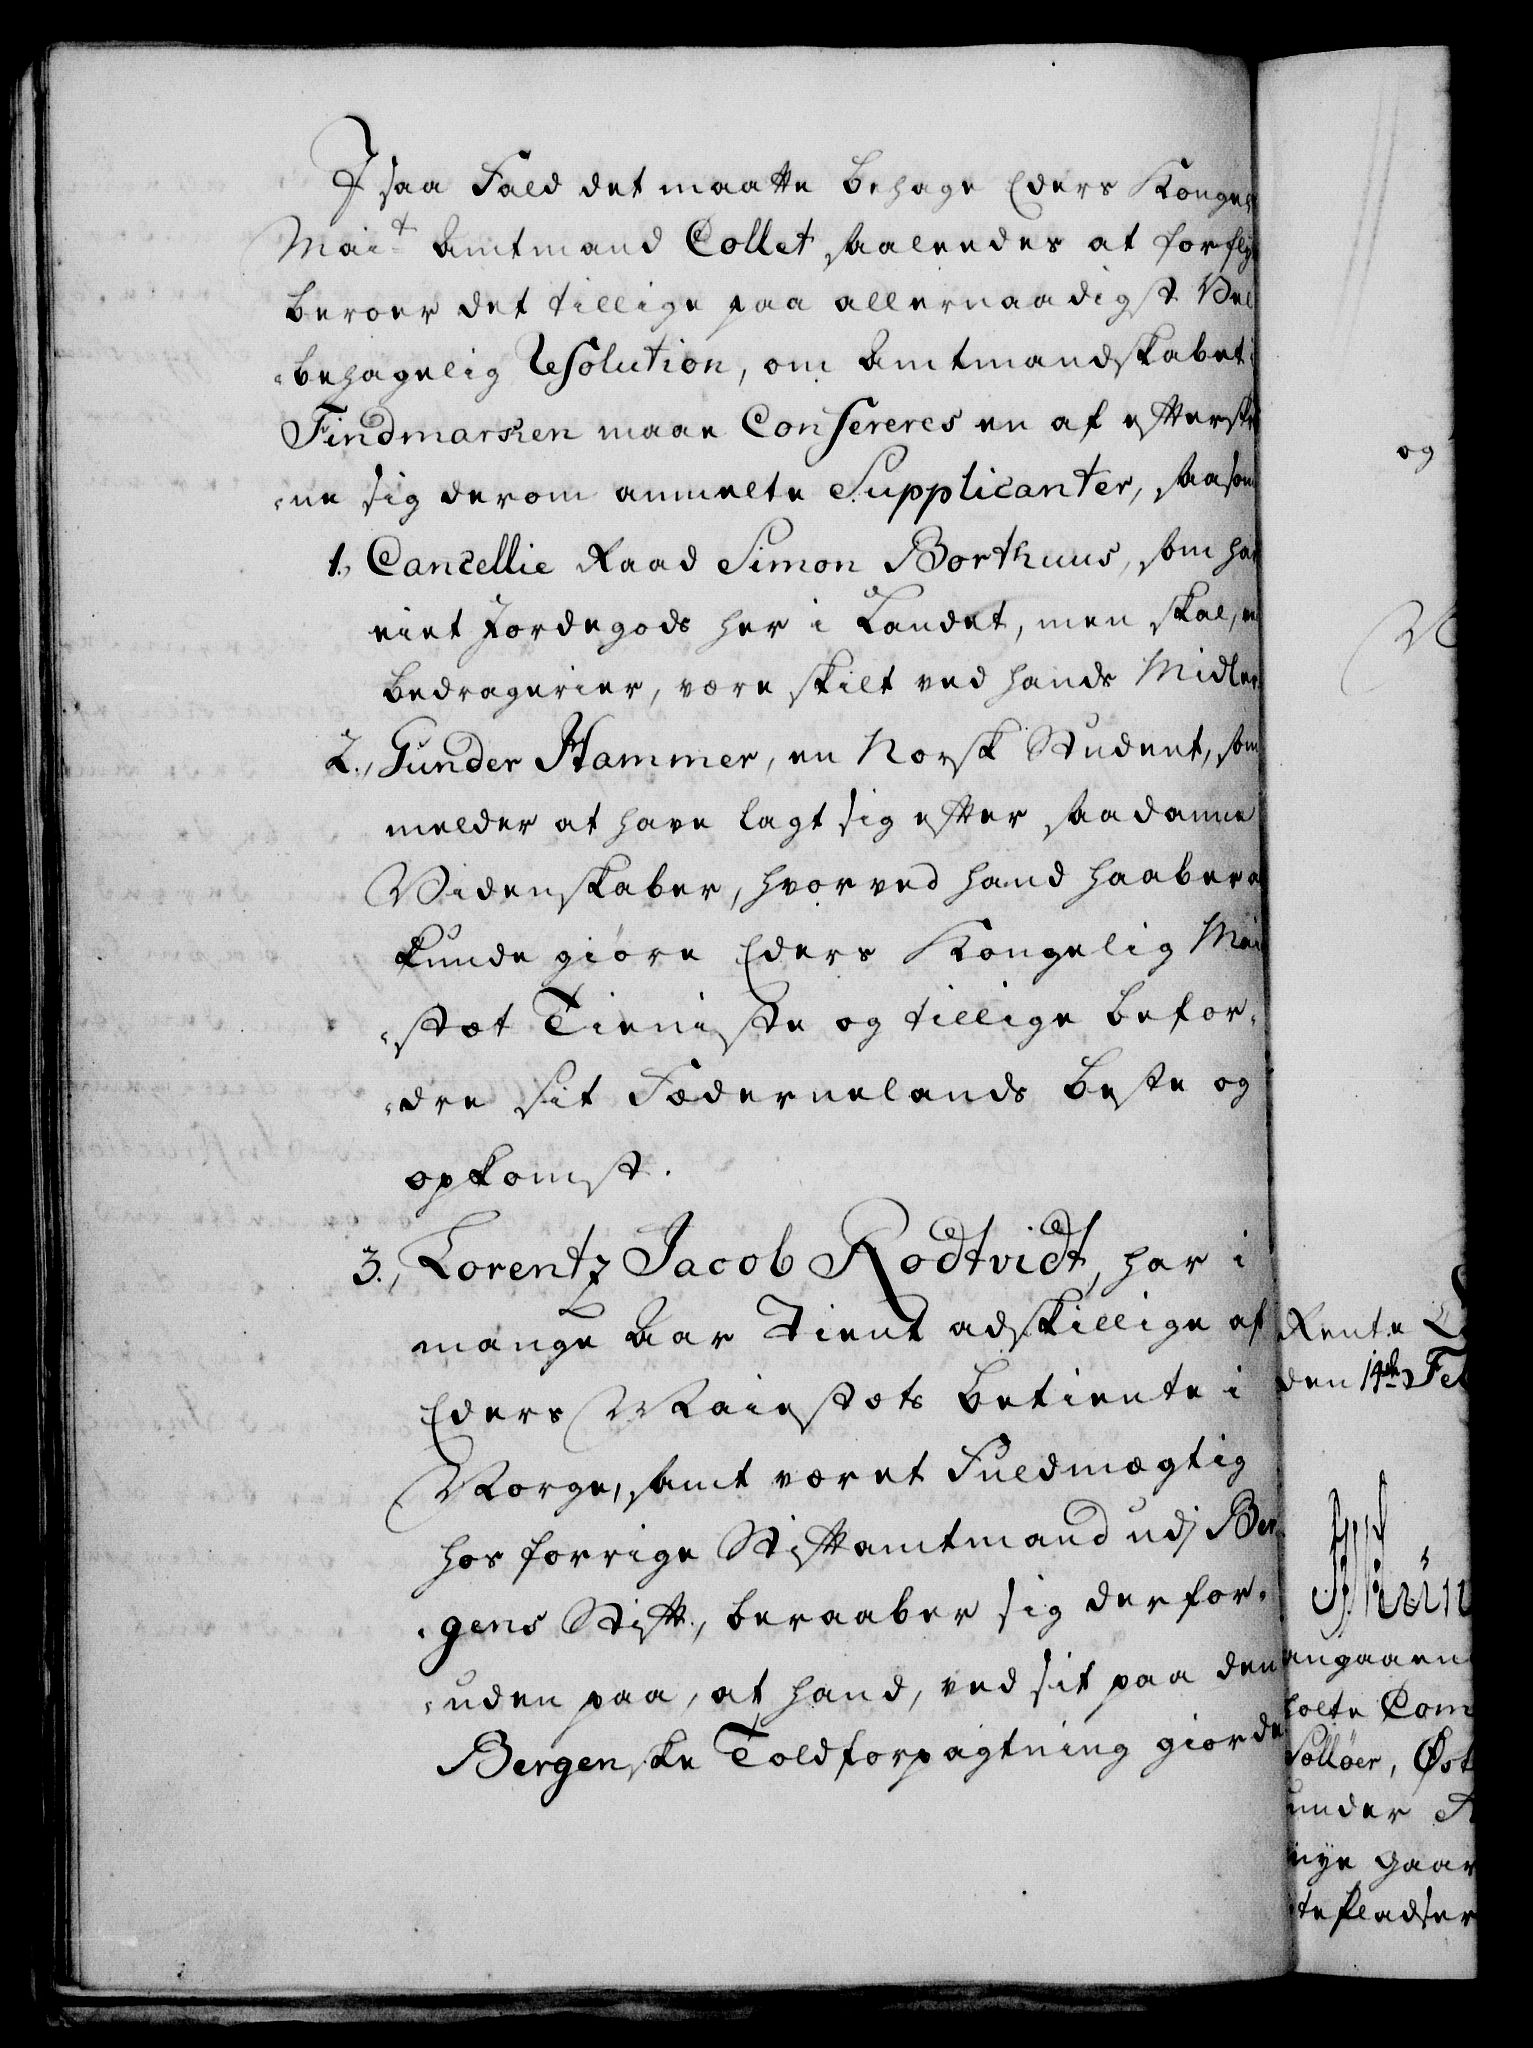 I saa Fald det maatte behage Eders Kongel
Mai.t Amtmand Collet saaleedes at forfly
beroer det tillige paa allernaadigst Vel
behagelig Resolution, om Amtmandskabet i
Findmarken maae Confereres en af efterskr
ne sig derom anmelte Supplicanter, saasom
1., Cancellie Raad Simon Borthuus, som har
eiet Jordegods her i Landet, men skal, ved
bedragerier, være skilt ved hands Midler
2., Gunder Hammer, en Norsk Student, som
melder at have lagt sig efter saadanne
Videnskaber, hvorved hand haaber a
kunde giøre Eders Kongelig Mai
stæt Tieniste og tillige befor-
dre sit Fædernelands beste og
opkomst.
3., Lorentz Jacob Rodtvidt, har i
mange Aar Tient adskillige af
Eders Maiestæts betiente i
Norge, samt været Fuldmægtig
hos forrige Stiftamtmand udj Ber
gens Stift, beraaber sig derfor-
uden paa, at hand, ved sit paa den
Bergenske Toldforpagtning giorde
og
Rente
den 14de Feb
angaaen
holte Com
Solløer, Øst
under
nye Gaar
te Pladser